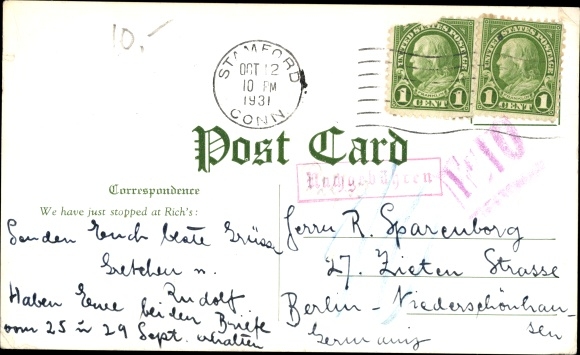 10.-
STAMFORD
OCT 12
10 PM
1931
CONN.
UNITED STATES POSTAGE
FRANKLIN
1 CENT 1
UNITED STATES POSTAGE
FRANKLIN
1 CENT 1
Post Card
Nachgebühren
Correspondence
We have just stopped at Rich's:
Senden Euch beste Grüsse
Gretchen u.
Rudolf
Haben Eure beiden Briefe
vom 25 u 29 Sept. erhalten
Herrn R. Sparenborg
27. Zieten Strasse
Berlin - Niederschönhau-
sen
Germany